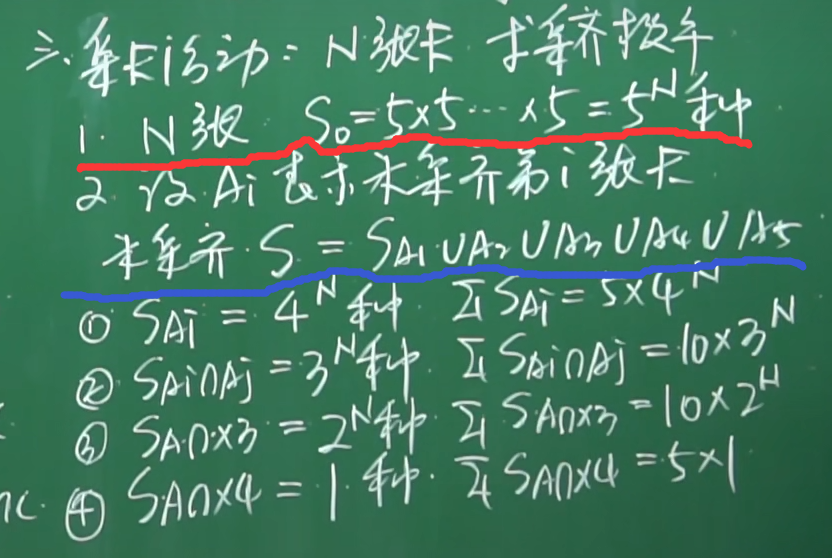 三.集卡活动:N张卡 求集齐概率
1. N张 S₀=5×5…×5=5ᴺ种
2 设Ai表示未集齐第i张卡
未集齐.S = SA₁∪A₂∪A₃∪A₄∪A₅
① SAi = 4ᴺ种 ΣSAi = 5×4ᴺ
② SAi∩Aj = 3ᴺ种. ΣSAi∩Aj = 10×3ᴺ
③ SA∩×3 = 2ᴺ种. ΣSA∩×3 = 10×2ᴺ
④ SA∩×4 = 1种. ΣSA∩×4 = 5×1